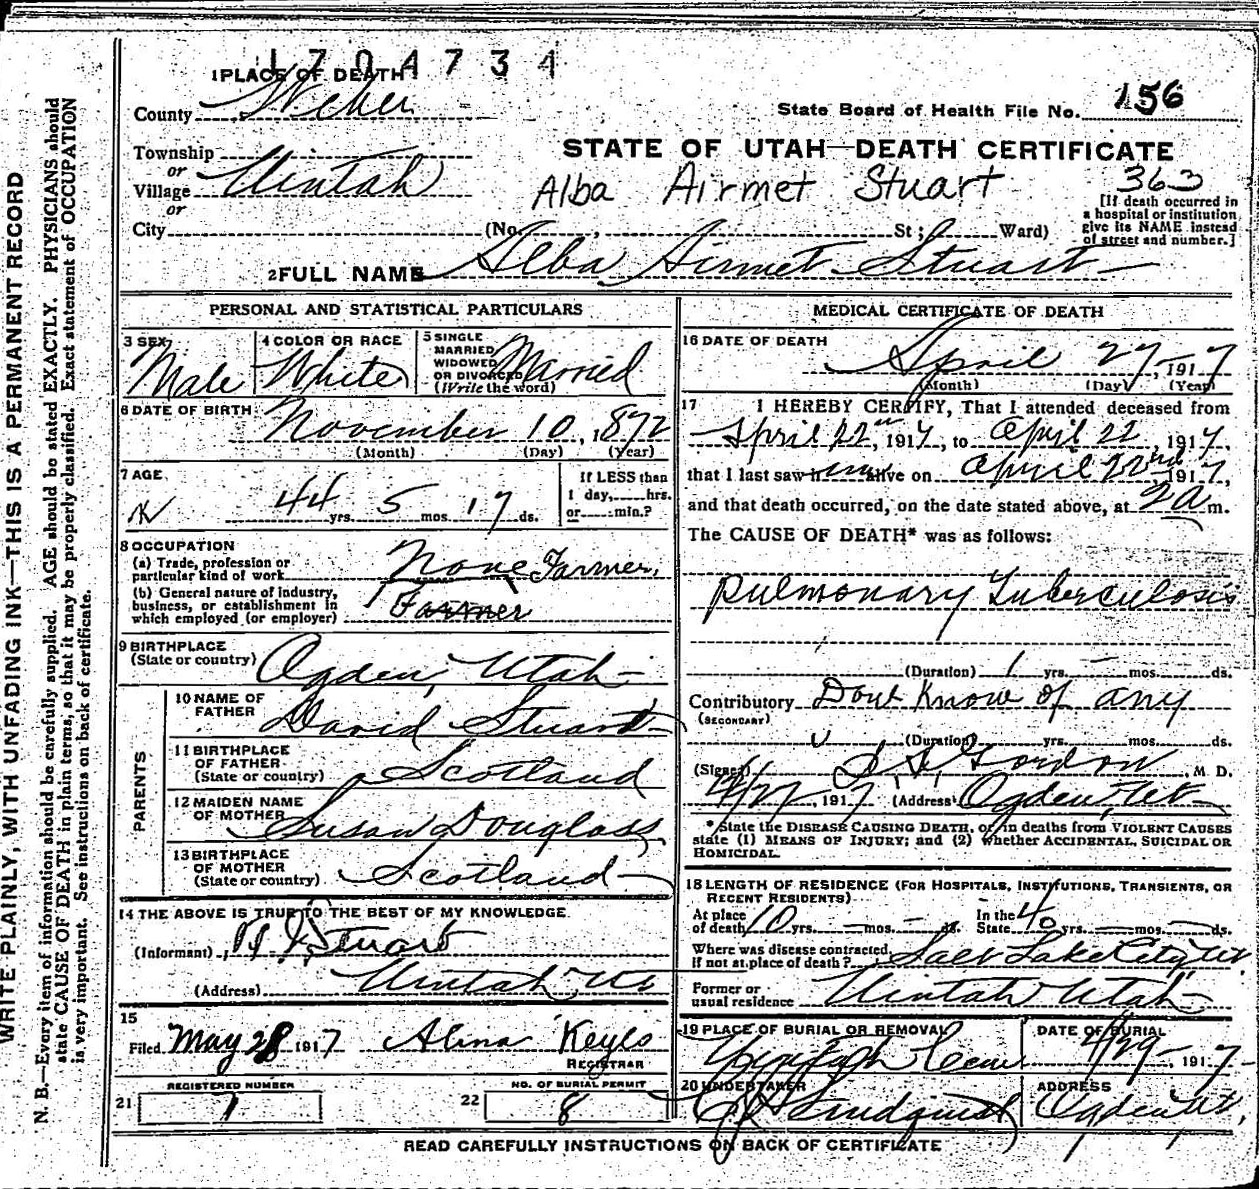 1704734
1 PLACE OF DEATH
County Weber
State Board of Health File No. 156
Township
or
Village Uintah
or
City
STATE OF UTAH—DEATH CERTIFICATE
Alba Airmet Stuart
363
(No. , St ; Ward)
[If death occurred in
a hospital or institution
give its NAME instead
of street and number.]
2 FULL NAME Alba Airmet Stuart
PERSONAL AND STATISTICAL PARTICULARS
3 SEX Male
4 COLOR OR RACE White
5 SINGLE
MARRIED
WIDOWED
OR DIVORCED
(Write the word) Married
6 DATE OF BIRTH November 10, 1872
(Month) (Day) (Year)
7 AGE
44 yrs. 5 mos. 17 ds.
If LESS than
1 day, hrs.
or min.?
8 OCCUPATION
(a) Trade, profession or
particular kind of work None Farmer.
(b) General nature of industry,
business, or establishment in
which employed (or employer) Farmer
9 BIRTHPLACE
(State or country) Ogden, Utah
PARENTS
10 NAME OF
FATHER David Stuart
11 BIRTHPLACE
OF FATHER
(State or country) Scotland
12 MAIDEN NAME
OF MOTHER Susan Douglass
13 BIRTHPLACE
OF MOTHER
(State or country) Scotland
14 THE ABOVE IS TRUE TO THE BEST OF MY KNOWLEDGE
(Informant) Stuart
(Address) Uintah, Ut
15
Filed May 28 1917 Keyes
REGISTRAR
REGISTERED NUMBER
21 7
NO. OF BURIAL PERMIT
22 8
MEDICAL CERTIFICATE OF DEATH
16 DATE OF DEATH
April 27, 1917
(Month) (Day) (Year)
17 I HEREBY CERTIFY, That I attended deceased from
April 22, 1917, to April 22, 1917
that I last saw him alive on April 22nd 1917,
and that death occurred, on the date stated above, at 2 a m.
The CAUSE OF DEATH* was as follows:
Pulmonary Tuberculosis
(Duration) 1 yrs. — mos. ds.
Contributory Dont Know of any
(SECONDARY)
(Duration) yrs. mos. ds.
(Signed) Gordon, M D.
4/27, 1917 (Address) Ogden, Ut
*State the DISEASE CAUSING DEATH, or, in deaths from VIOLENT CAUSES
state (1) MEANS OF INJURY; and (2) whether ACCIDENTAL, SUICIDAL OR
HOMICIDAL.
18 LENGTH OF RESIDENCE (FOR HOSPITALS, INSTITUTIONS, TRANSIENTS, OR
RECENT RESIDENTS)
At place
of death 10 yrs. — mos. — ds.
In the
State 40 yrs. — mos. ds.
Where was disease contracted
If not at place of death? Salt Lake City Ut
Former or
usual residence Uintah Utah
19 PLACE OF BURIAL OR REMOVAL
Cem
DATE OF BURIAL
4/29 1917
20 UNDERTAKER
Lindquist
ADDRESS
Ogden Ut.
READ CAREFULLY INSTRUCTIONS ON BACK OF CERTIFICATE
WRITE PLAINLY, WITH UNFADING INK—THIS IS A PERMANENT RECORD
N. B.—Every item of information should be carefully supplied. AGE should be stated EXACTLY. PHYSICIANS should
state CAUSE OF DEATH in plain terms, so that it may be properly classified. Exact statement of OCCUPATION
is very important. See instructions on back of certificate.